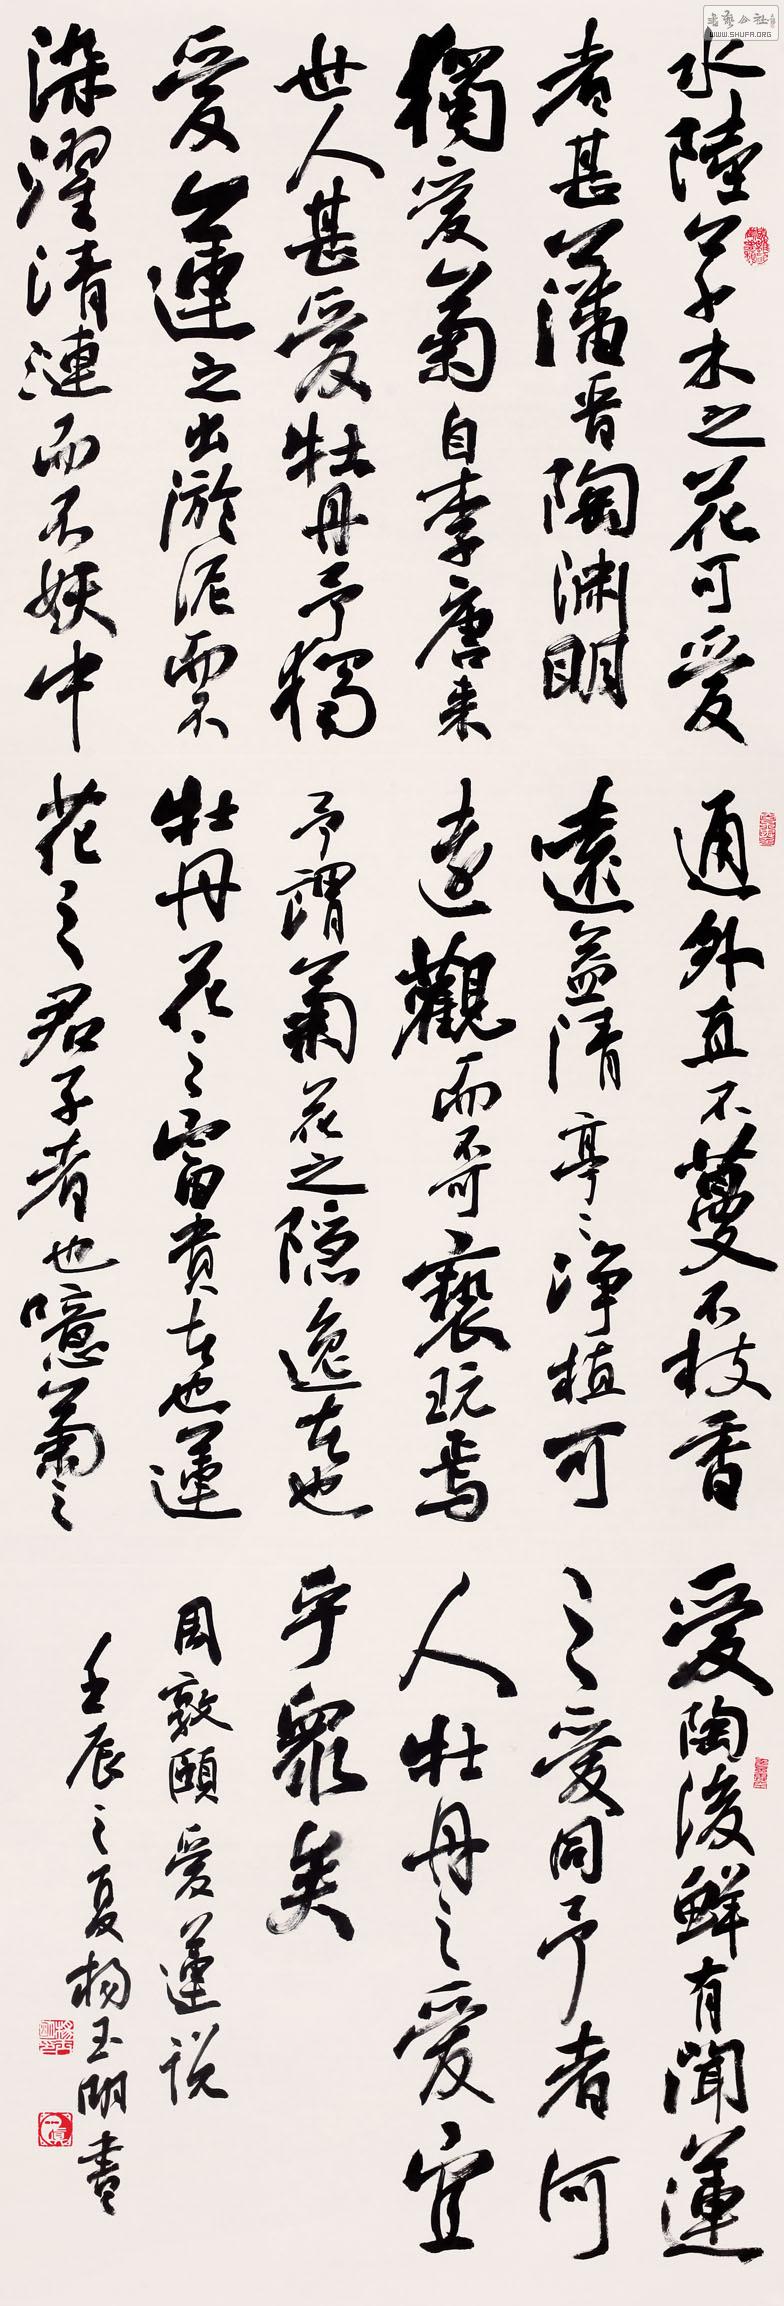 水陸草木之花可愛
者甚藩晉陶淵明
獨愛菊自李唐来
世人甚愛牡丹予獨
愛蓮之出淤泥而不
染濯清漣而不妖中
通外直不蔓不枝香
遠益清亭〻净植可
遠觀而不可褻玩焉
予謂菊花之隱逸者也
牡丹花之富貴者也蓮
花之君子者也噫菊之
愛陶後鮮有聞蓮
之愛同予者何
人牡丹之愛宜
乎眾矣
周敦頤愛蓮説
壬辰之夏楊玉明書
WWW.SHUFA.ORG